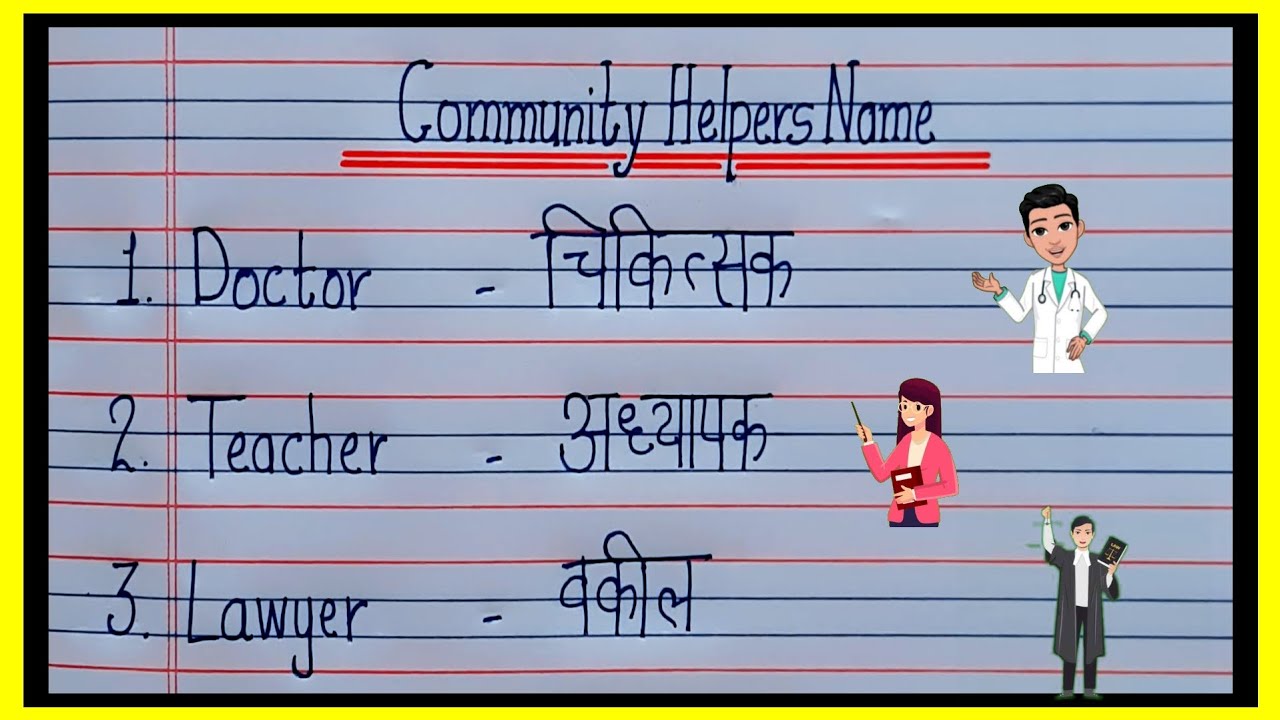 Community Helpers Name
1. Doctor - चिकित्सक
2. Teacher - अध्यापक
3. Lawyer - वकील
LAW